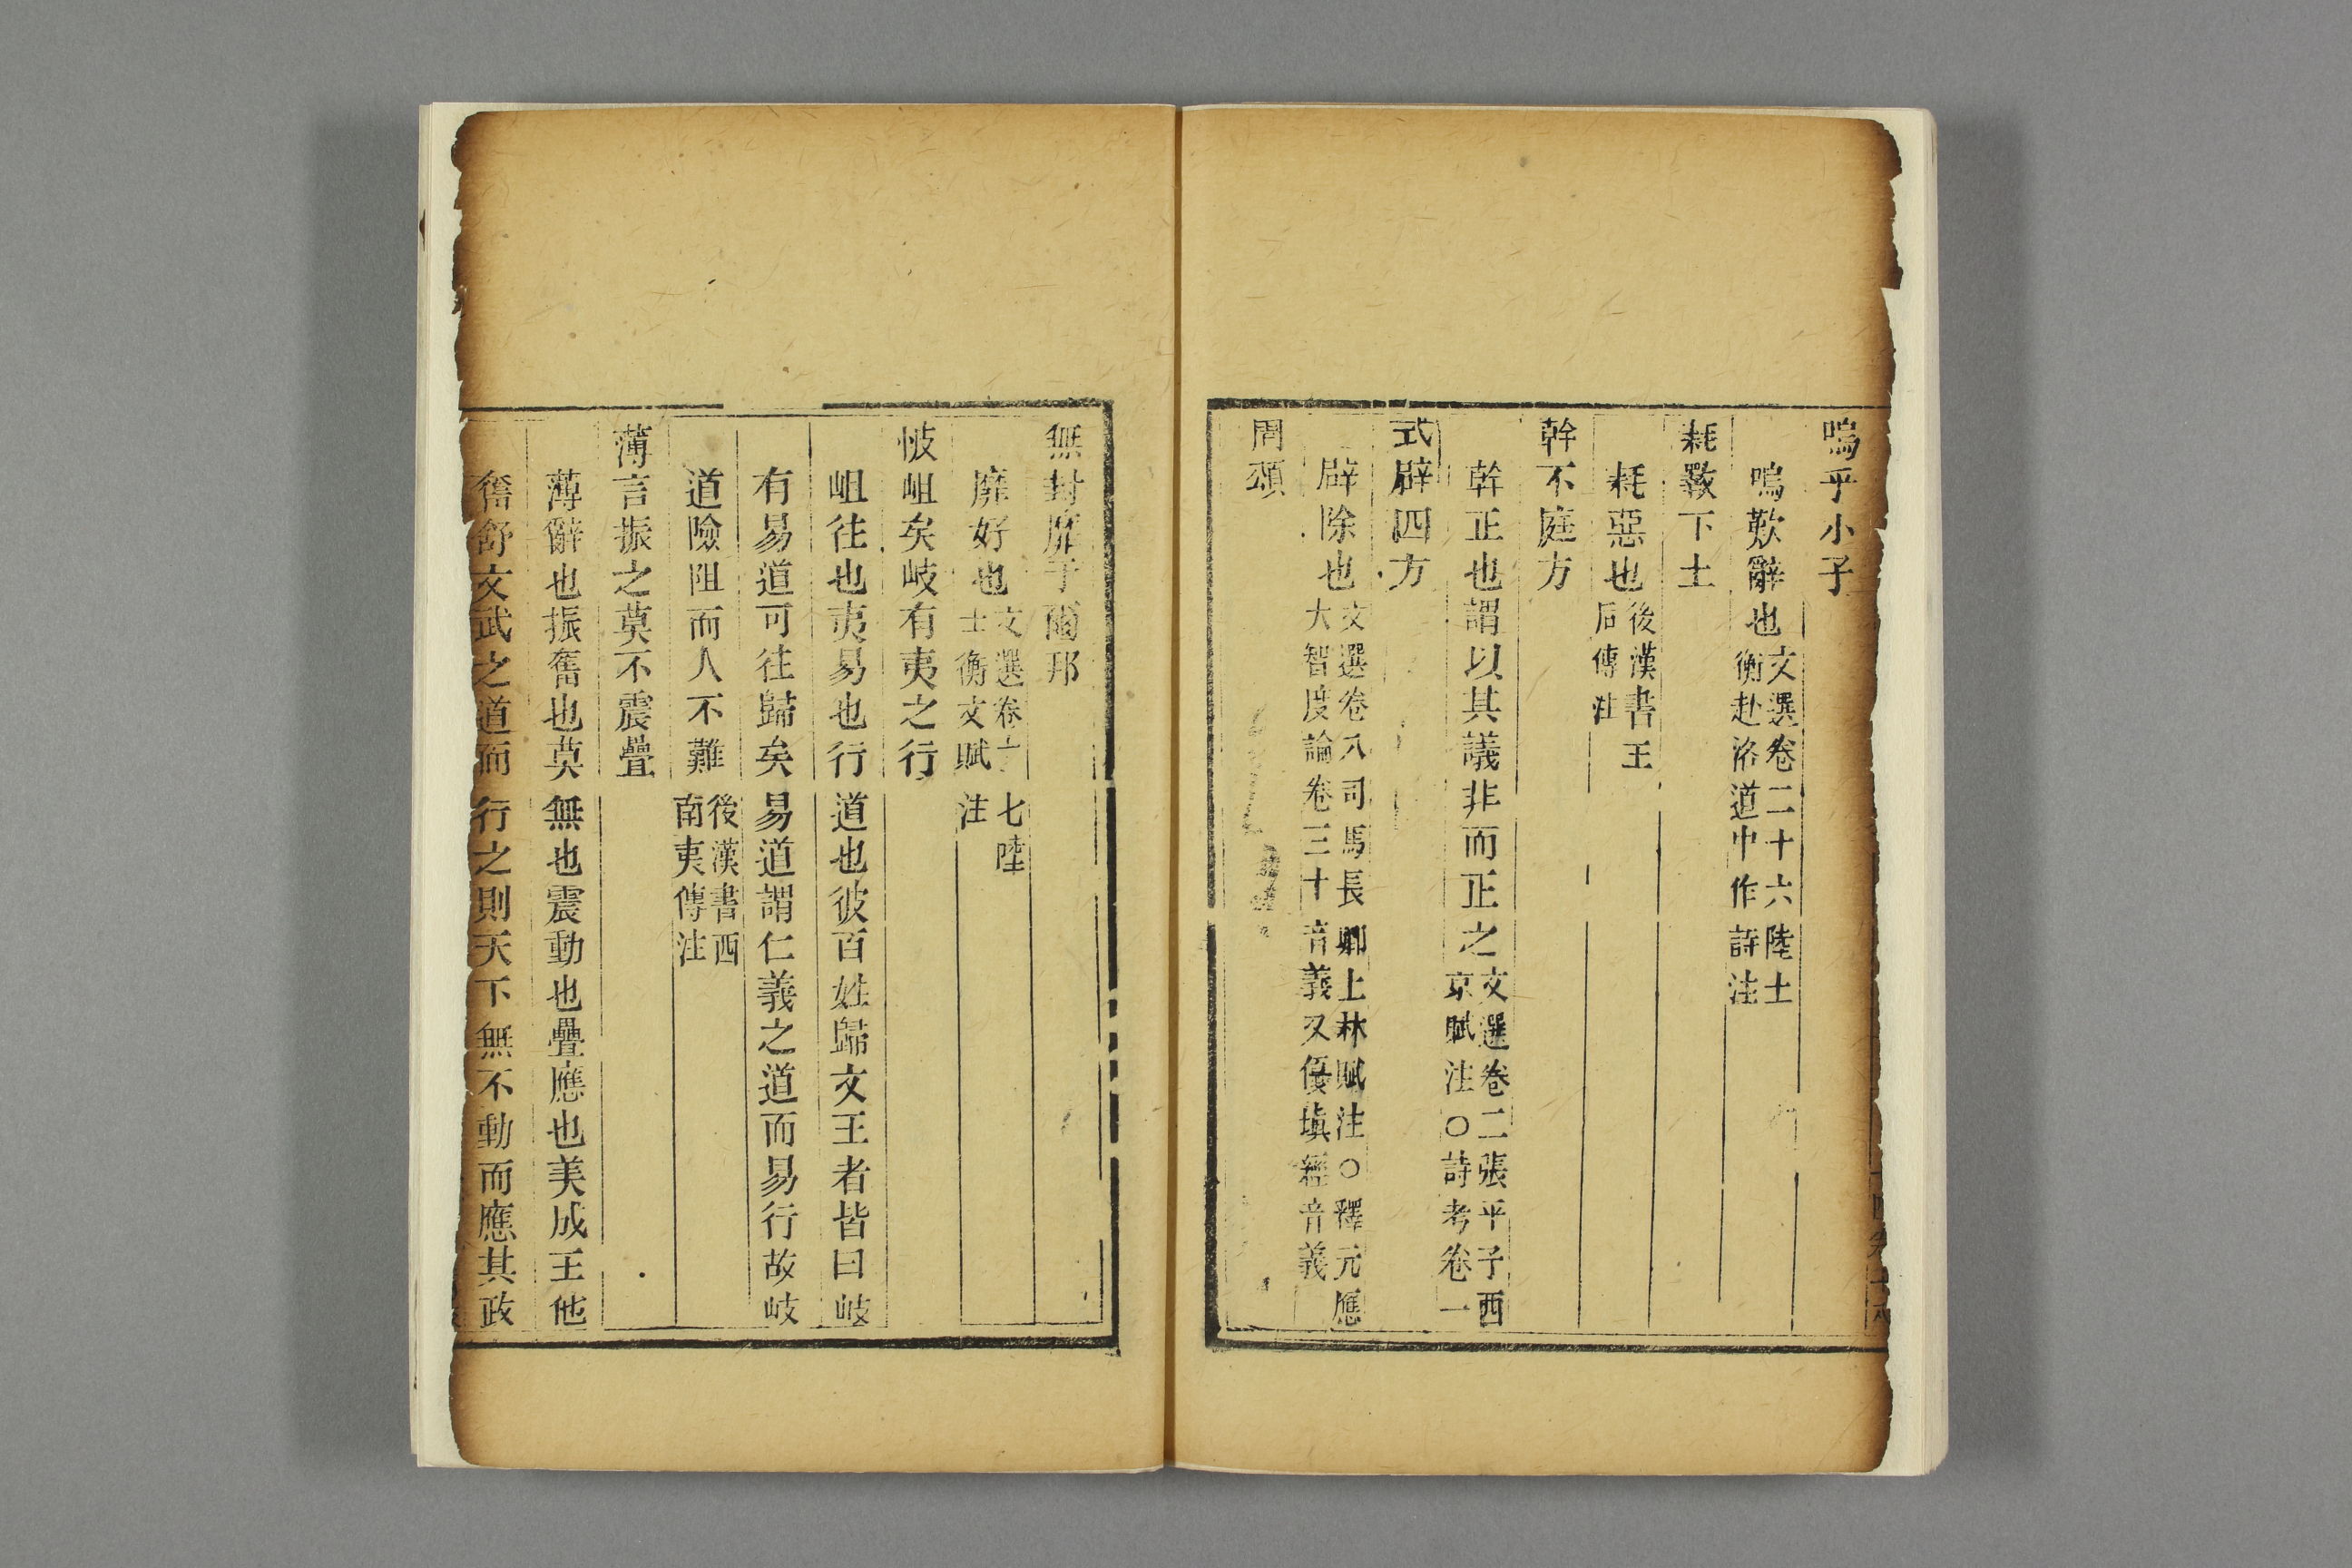 嗚乎小子
嗚歎辭也文選卷二十六陸士
衡赴洛道中作詩注
耗斁下土
耗惡也後漢書王
后傳注
幹不庭方
幹正也謂以其議非而正之文選卷二張平子西
京賦注○詩考卷一
式辟四方
辟除也文選卷八司馬長卿上林賦注○釋元應
大智度論卷三十音義又優塡經音義
周頌
無封靡于爾邦
靡好也文選卷十七陸
士衡文賦注
岐徂矣岐有夷之行
徂往也夷易也行道也彼百姓歸文王者皆曰岐
有易道可往歸矣易道謂仁義之道而易行故岐
道險阻而人不難後漢書西
南夷傳注
薄言振之莫不震疊
薄辭也振奮也莫無也震動也疊應也美成王他
奮舒文武之道而行之則天下無不動而應其政